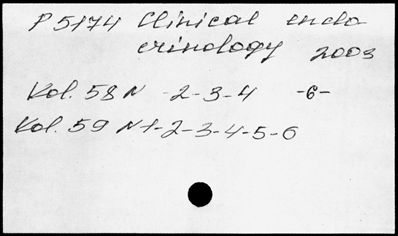 P 5174 Clinical endo
crinology 2003
Vol. 58 N -2-3-4 -6-
Vol. 59 N 1-2-3-4-5-6